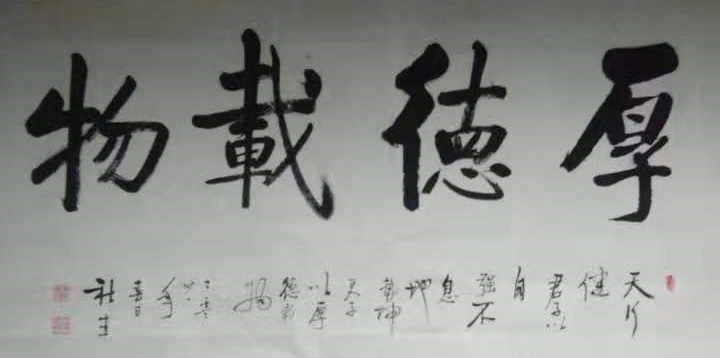 厚德載物
天行
健
君子以
自
强不
息
地
势坤
君子
以厚
德載
物
年
春日